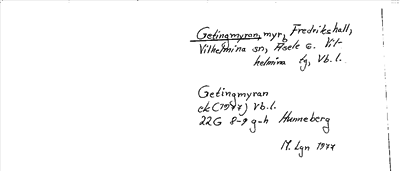 Getingmyran, myr, Fredrikshall,
Vilhelmina sn, Åsele o. Vil-
helmina tg, Vb.l.
Getingmyran
ek (1977) Vb.l.
22G 8-9 g-h Hunneberg
M. Lgn 1977